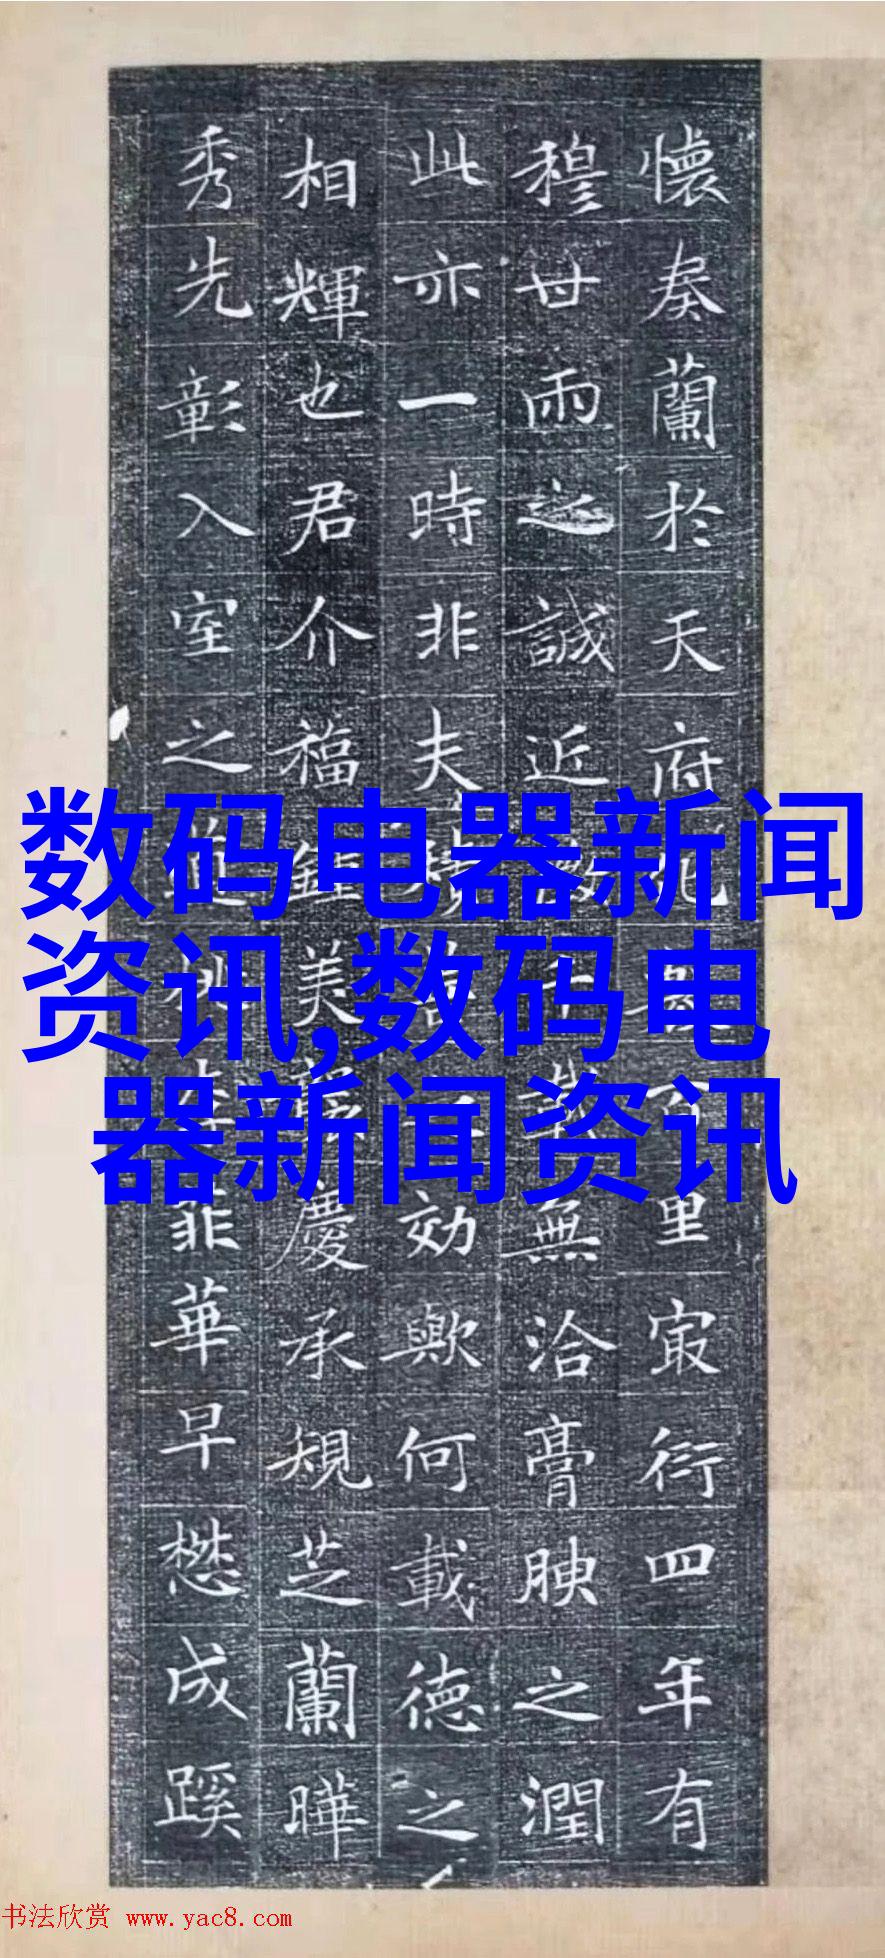 懷奏蘭於天府里㝡衍四年有
穆世雨之誠近無洽膏腴之潤
此亦一時非夫効歟何載德之
相輝也君介福美慶承規芝蘭曄
秀先彰入室之華早懋成蹊
数码电器新闻
资讯,数码电
器新闻资讯
书法欣赏 www.yac8.com